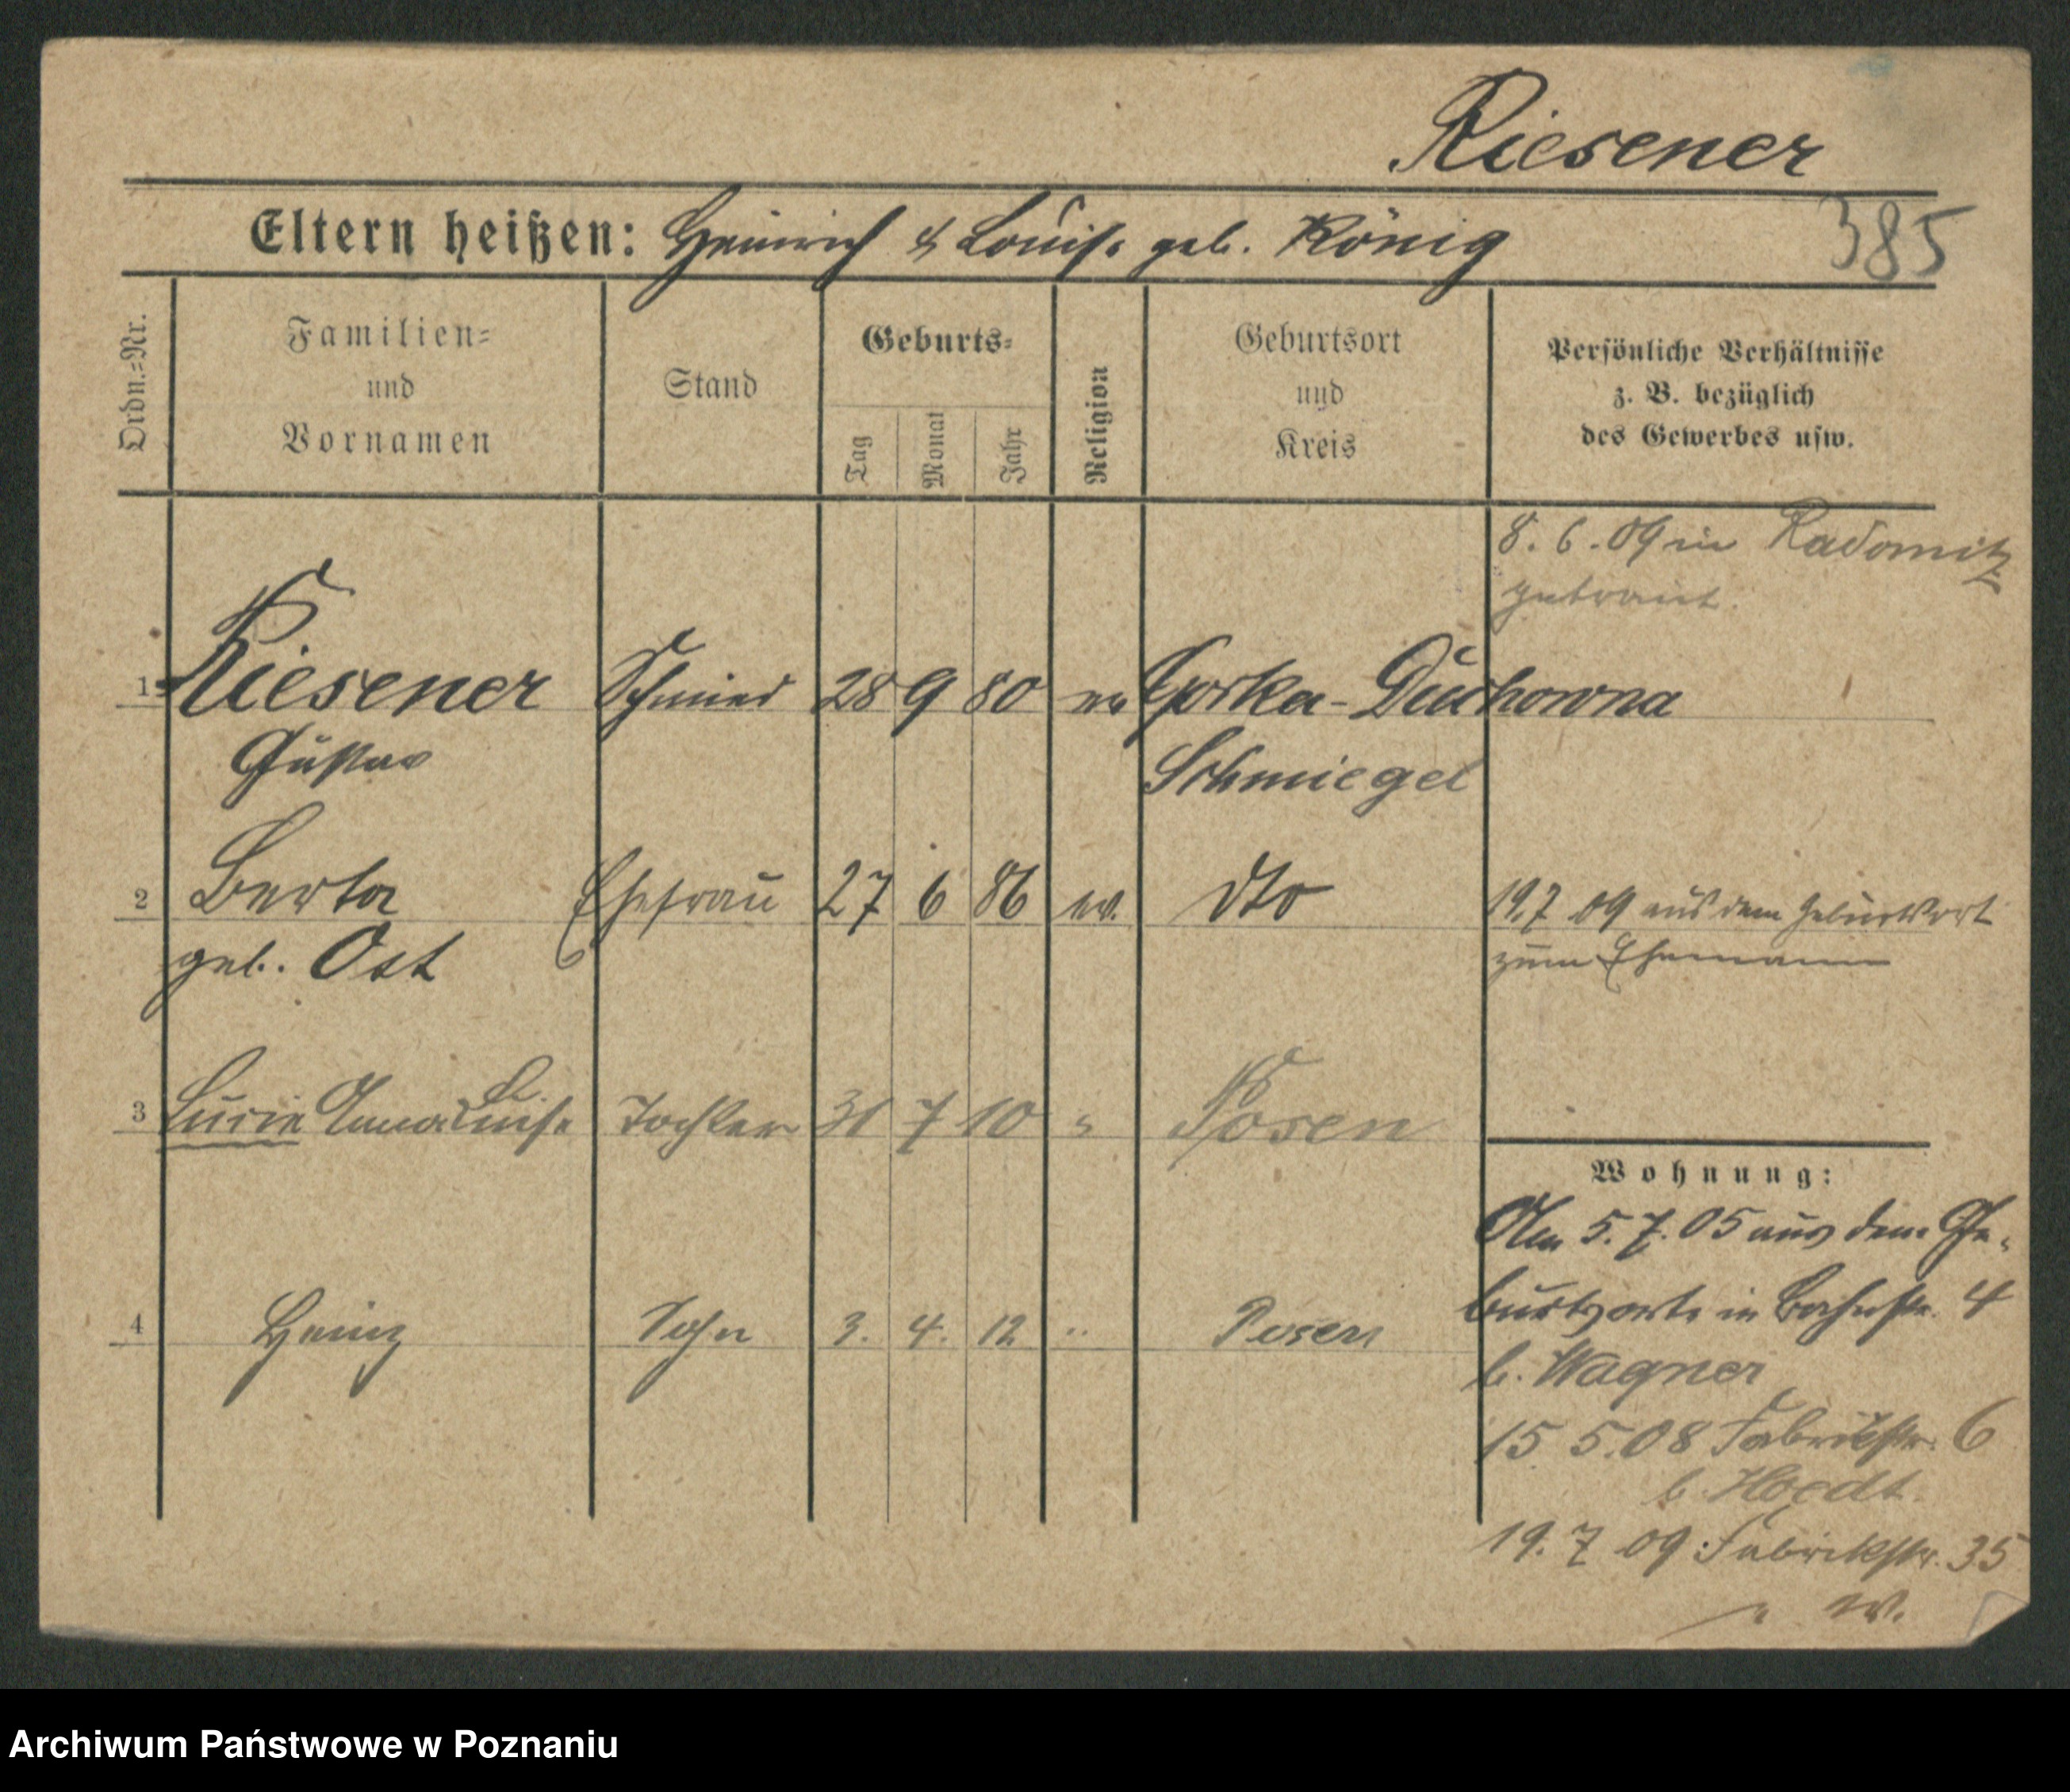 Riesener
Eltern heißen: Heinrich & Louise geb. König
385
Ordn.-Nr.
Familien-
und
Vornamen
Stand
Geburts-
Tag
Monat
Jahr
Religion
Geburtsort
und
Kreis
Persönliche Verhältnisse
z. B. bezüglich
des Gewerbes usw.
8. 6. 09 in Radomitz
getraut.
1 Riesener Schmied 28 9 80 ev Gorka-Duchowna
Gustav Schmiegel
2 Berta Ehefrau 27 6 86 ev. dto 19.7 09 aus dem Geburtsort
geb. Ost zum Ehemann
3 Lucie Anna Luise Tochter 31 7 10 " Posen
Wohnung:
Am 5. 7. 05 aus dem Ge-
burtsorte in Bahnstr. 4
4 Heinz Sohn 3. 4. 12 " Posen
b. Wagner
15 5. 08 Fabrikstr. 6
b. Hoedt.
19. 7 09 Fabrikstr. 35
" W.
Archiwum Państwowe w Poznaniu